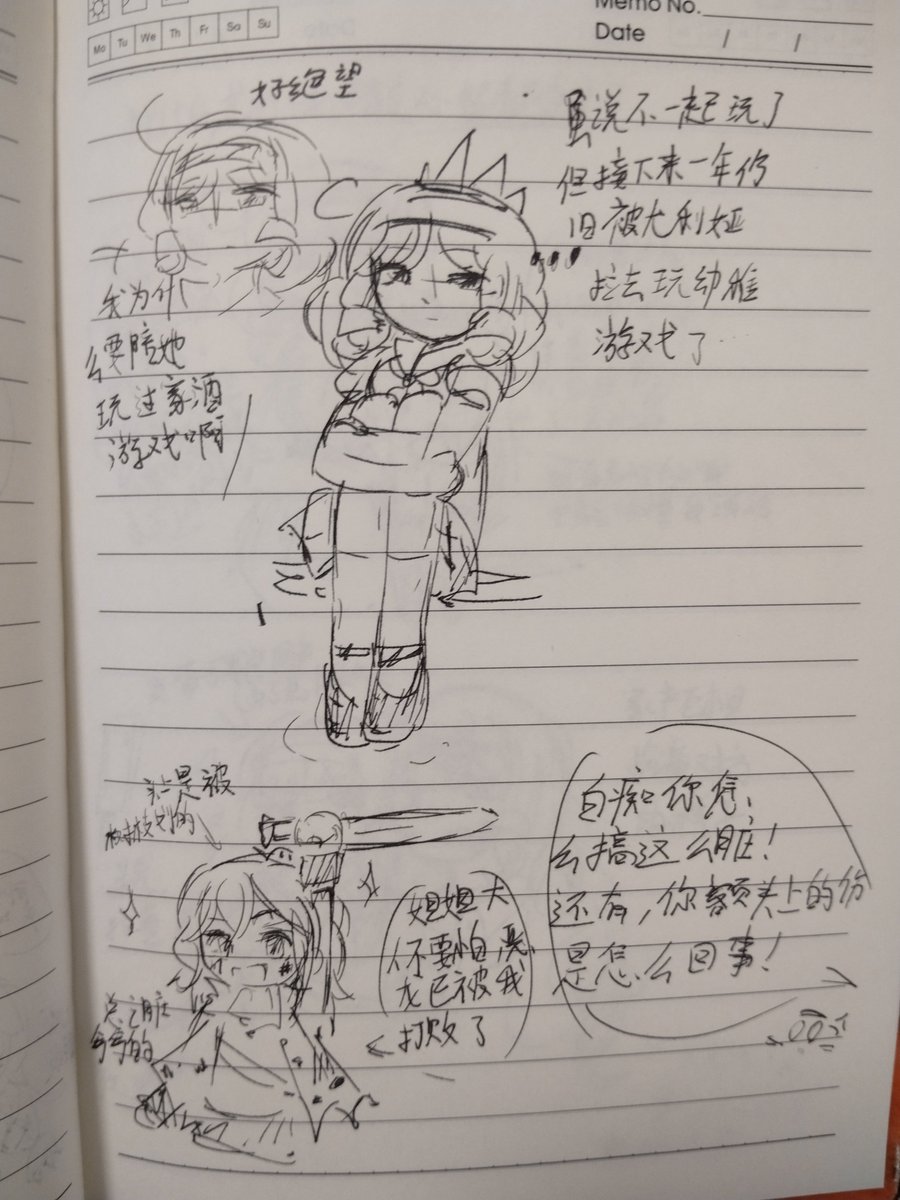 Memo No.
Date / /
Mo Tu We Th Fr Sa Su
好绝望
虽说不一起玩了
但接下来一年仍
旧被尤利娅
拉去玩幼稚
游戏了…
我为什
么要陪她
玩过家酒
游戏啊
头是被
树枝划的
白痴你怎
么搞这么脏！
还有，你额头上的伤
是怎么回事！
姐姐大人
不要怕恶
龙已被我
打败了
总之脏
兮兮的